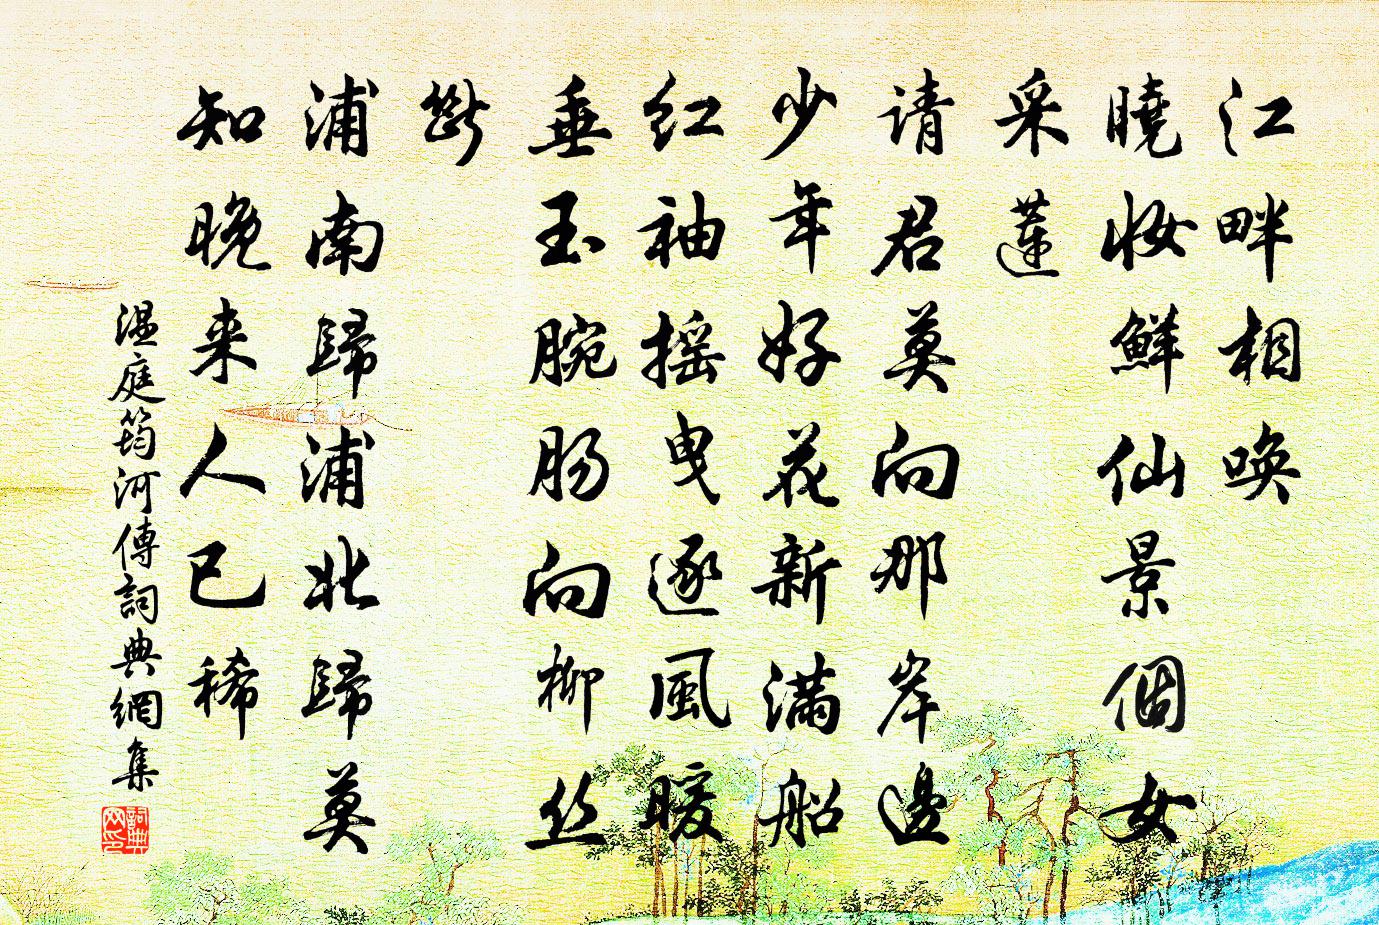 江畔相唤
曉妆鮮仙景個女
采蓮
请君莫向那岸邊
少年好花新满船
红袖摇曳逐風暖
垂玉腕肠向柳丝
斷
浦南歸浦北歸莫
知晚来人已稀
温庭筠河傳詞典網集
詞典网印